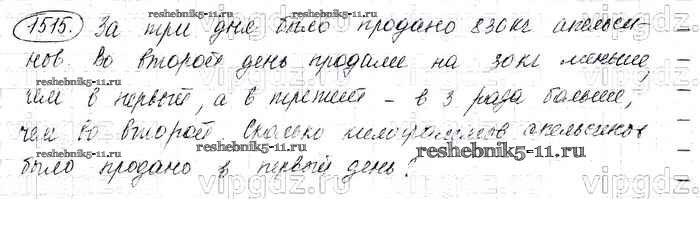 1515. За три дня было продано 830кг апельси-
нов. Во второй день продали на 30кг меньше,
чем в первый, а в третий - в 3 раза больше,
чем во второй. Сколько килограммов апельсинов
было продано в первый день?
reshebnik5-11.ru
reshebnik5-11.ru
reshebnik5-11.ru
reshebnik5-11.ru
vipgdz.ru
vipgdz.ru
vipgdz.ru
vipgdz.ru
vipgdz.ru
vipgdz.ru